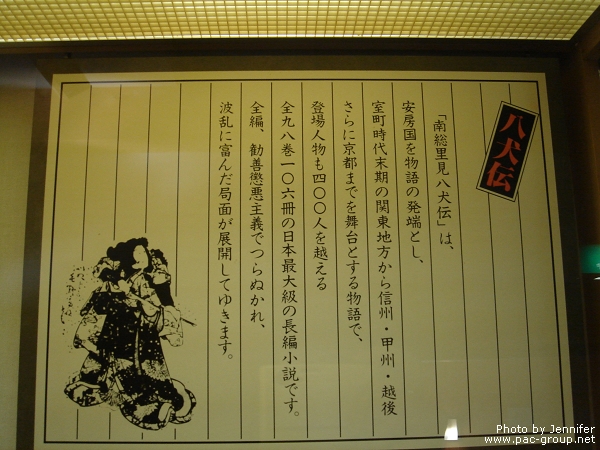 八犬伝
「南総里見八犬伝」は、
安房国を物語の発端とし、
室町時代末期の関東地方から信州・甲州・越後
さらに京都までを舞台とする物語で、
登場人物も四〇〇人を越える
全九八巻一〇六冊の日本最大級の長編小説です。
全編、勧善懲悪主義でつらぬかれ、
波乱に富んだ局面が展開してゆきます。
Photo by Jennifer
www.pac-group.net